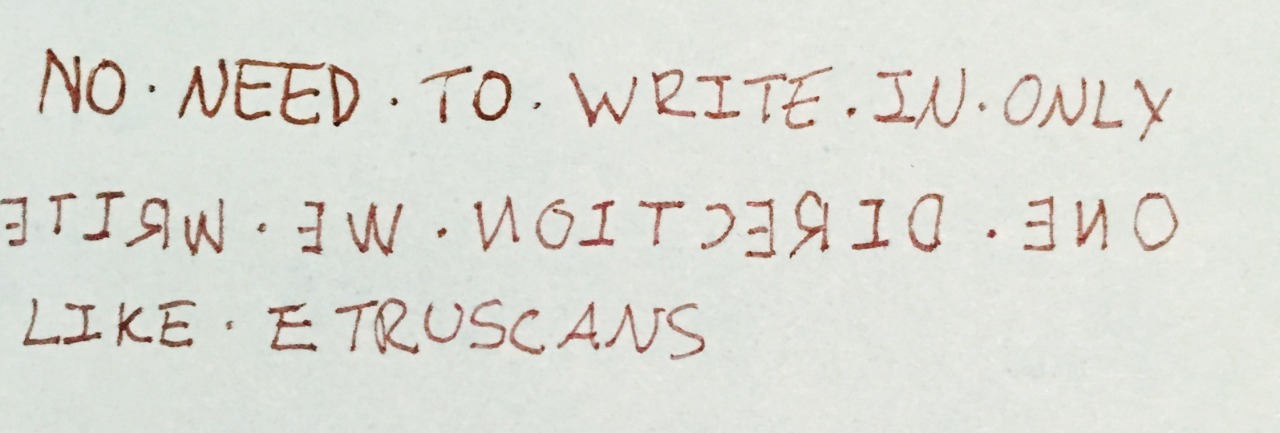 NO · NEED · TO · WRITE · IN · ONLY
ONE · DIRECTION · WE · WRITE
LIKE · ETRUSCANS